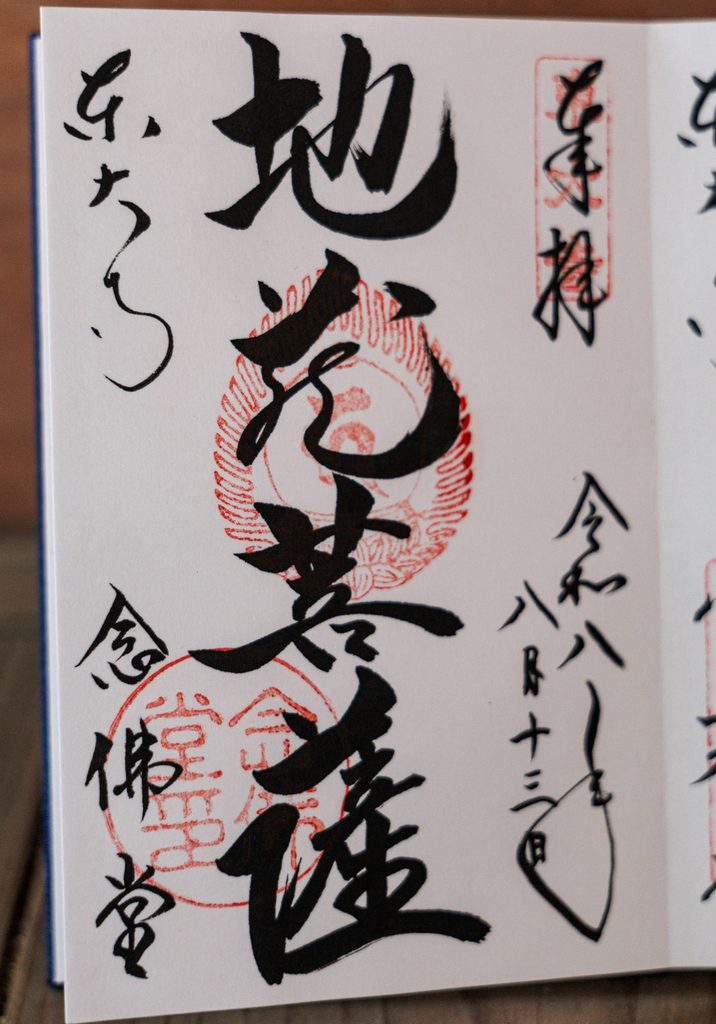 奉拝
令和八年
八月十三日
地蔵菩薩
東大寺
念佛堂
念佛堂印